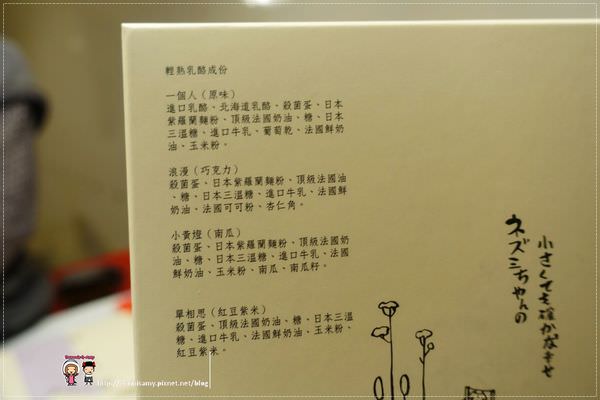 輕熱乳酪成份
一個人（原味）
進口乳酪、北海道乳酪、殺菌蛋、日本
紫羅蘭麵粉、頂級法國奶油、糖、日本
三溫糖、進口牛乳、葡萄乾、法國鮮奶
油、玉米粉。
浪漫（巧克力）
殺菌蛋、日本紫羅蘭麵粉、頂級法國油
、糖、日本三溫糖、進口牛乳、法國鮮
奶油、法國可可粉、杏仁角。
小黃燈（南瓜）
殺菌蛋、日本紫羅蘭麵粉、頂級法國奶
油、糖、日本三溫糖、進口牛乳、法國
鮮奶油、玉米粉、南瓜、南瓜籽。
單相思（紅豆紫米）
殺菌蛋、頂級法國奶油、糖、日本三溫
糖、進口牛乳、法國鮮奶油、玉米粉、
紅豆紫米。
小さくても確かな幸せ
ネズミちゃんの